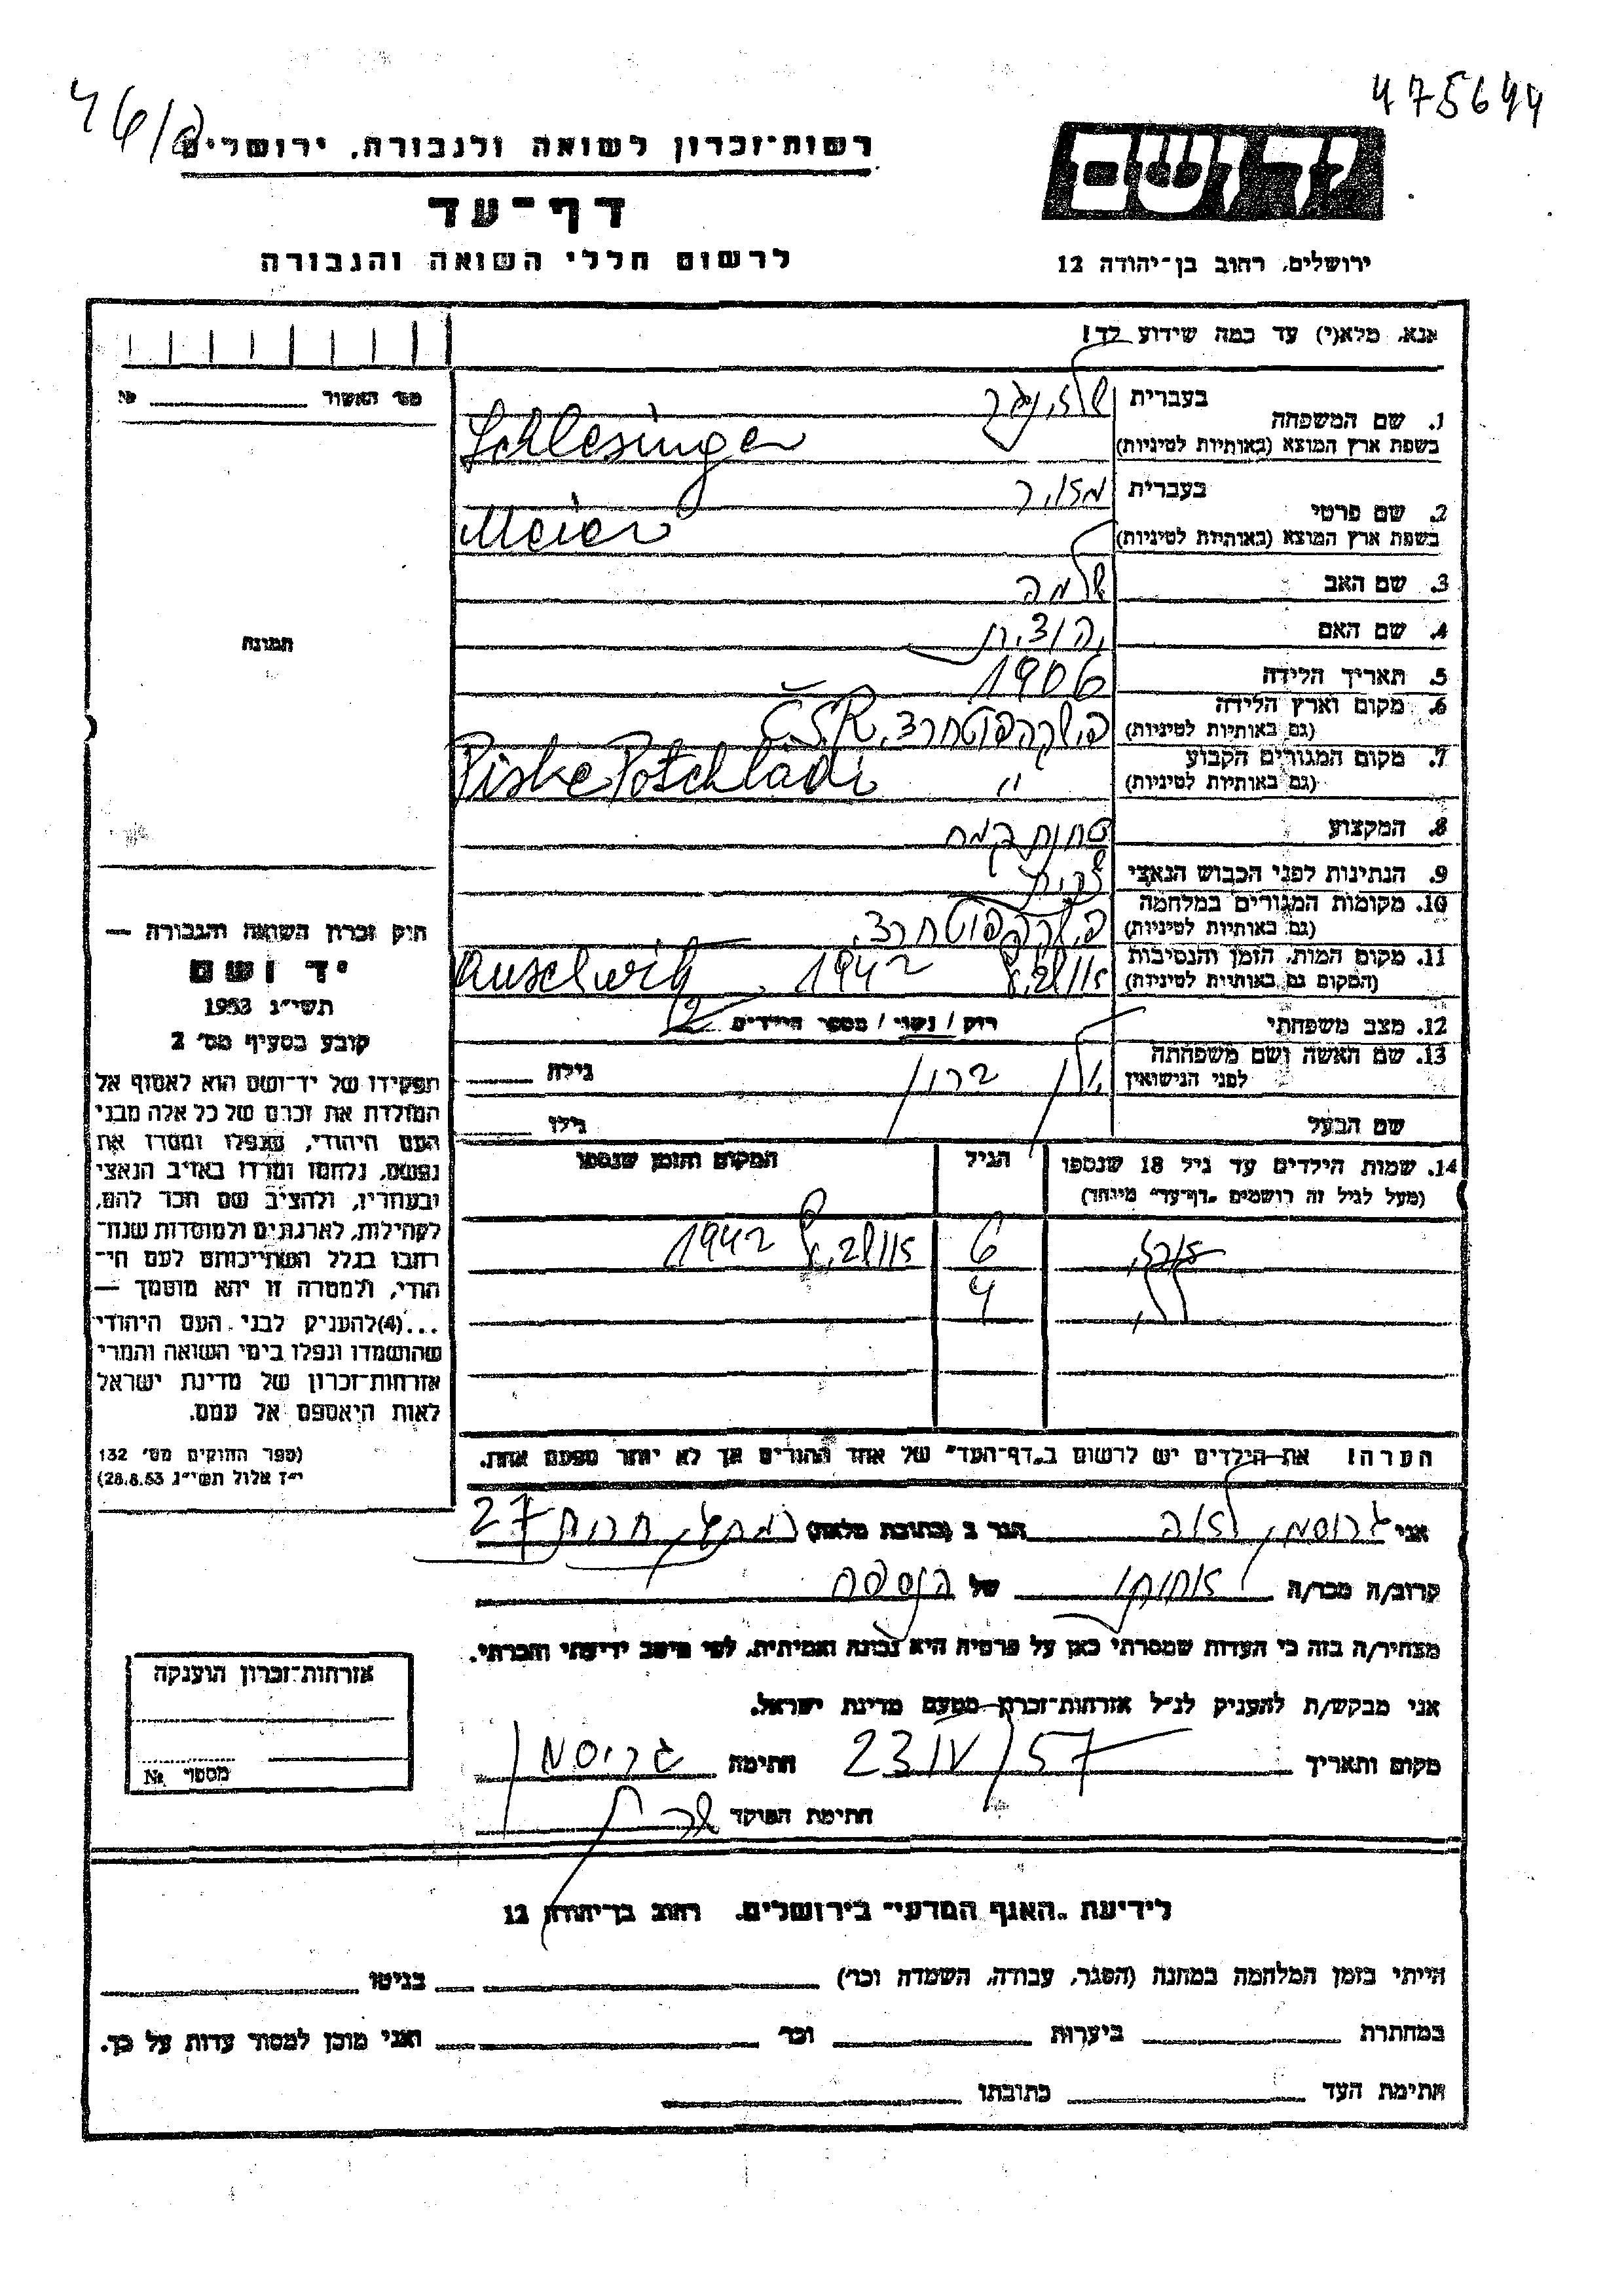 475644
46/a
רשות־זכרון לשואה ולגבורה, ירושלים
ידושם
דף־עד
לרשום חללי השואה והגבורה
ירושלים, רחוב בן־יהודה 12
אנא, מלא(י) עד כמה שידוע לך!
מס׳ האשור № 
1. שם המשפחה
בעברית שלזינגר
בשפת ארץ המוצא (באותיות לטיניות) Schlesinger
2. שם פרטי
בעברית מאיר
בשפת ארץ המוצא (באותיות לטיניות) Meier
תמונה
3. שם האב שלמה
4. שם האם יהודית
5. תאריך הלידה 1906
6. מקום וארץ הלידה
(גם באותיות לטיניות) Č.S.R.
7. מקום המגורים הקבוע
(גם באותיות לטיניות) " Piske Potchladi
8. המקצוע טחנת קמח
9. הנתינות לפני הכבוש הנאצי
10. מקומות המגורים במלחמה
(גם באותיות לטיניות)
11. מקום המות, הזמן והנסיבות
(המקום גם באותיות לטיניות) 1942 Auschwitz
12. מצב משפחתי רוק / נשוי / מספר הילדים 2
13. שם האשה ושם משפחתה
לפני הנישואין ברוין גילה
שם הבעל גילו
14. שמות הילדים עד גיל 18 שנספו
(מעל לגיל זה רושמים „דף־עד״ מיוחד)
הגיל
המקום והזמן שנספו
6 אושוויץ 1942
4
הערה! את הילדים יש לרשום ב„דף־העד״ של אחד ההורים אך לא יותר מפעם אחת.
חוק זכרון השואה והגבורה —
יד ושם
תשי״ג 1953
קובע בסעיף מס׳ 2
תפקידו של יד־ושם הוא לאסוף אל
המולדת את זכרם של כל אלה מבני
העם היהודי, שנפלו ומסרו את
נפשם, נלחמו ומרדו באויב הנאצי
ובעוזריו, ולהציב שם וזכר להם,
לקהילות, לארגונים ולמוסדות שנח־
רבו בגלל השתייכותם לעם הי־
הודי, ולמטרה זו יהא מוסמך —
...(4) להעניק לבני העם היהודי
שהושמדו ונפלו בימי השואה והמרי
אזרחות־זכרון של מדינת ישראל
לאות היאספם אל עמם.
(ספר החוקים מס׳ 132
י״ז אלול תשי״ג 28.8.53)
אני גרוסמן לאה הגר ב (כתובת מלאה) רמת גן, חרות 27
קרוב/ה מכר/ה אחותו של הנספה
מצהיר/ה בזה כי העדות שמסרתי כאן על פרטיה היא נכונה ואמיתית, לפי מיטב ידיעתי והכרתי.
אני מבקש/ת להעניק לנ״ל אזרחות־זכרון מטעם מדינת ישראל.
מקום ותאריך 23 IV 57 חתימה גרוסמן
חתימת הפוקד
אזרחות־זכרון הוענקה
מספר №
לידיעת „האגף המדעי״ בירושלים, רחוב בן־יהודה 12
הייתי בזמן המלחמה במחנה (הסגר, עבודה, השמדה וכו׳) בגיטו
במחתרת ביערות וכו׳ ואני מוכן למסור עדות על כך.
חתימת העד כתובתו